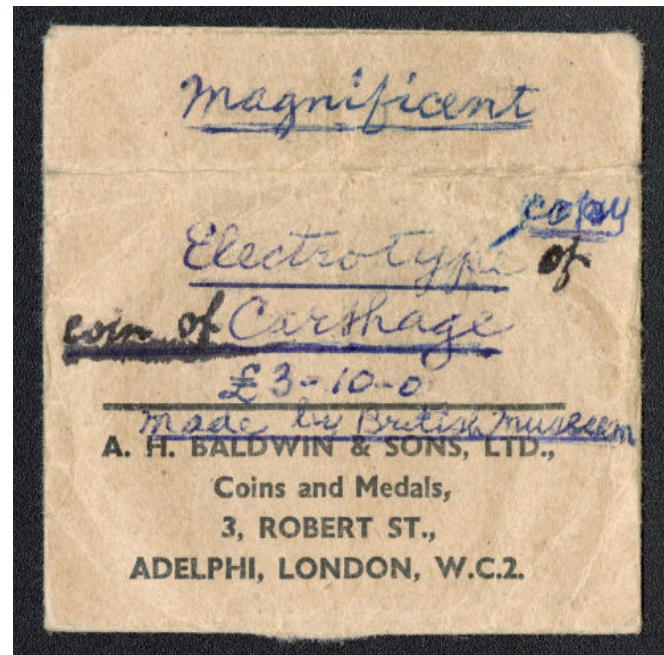 Magnificent
copy
Electrotype of
coin of Carthage
£3-10-0
Made by British Museum
A. H. BALDWIN & SONS, LTD.,
Coins and Medals,
3, ROBERT ST.,
ADELPHI, LONDON, W.C.2.